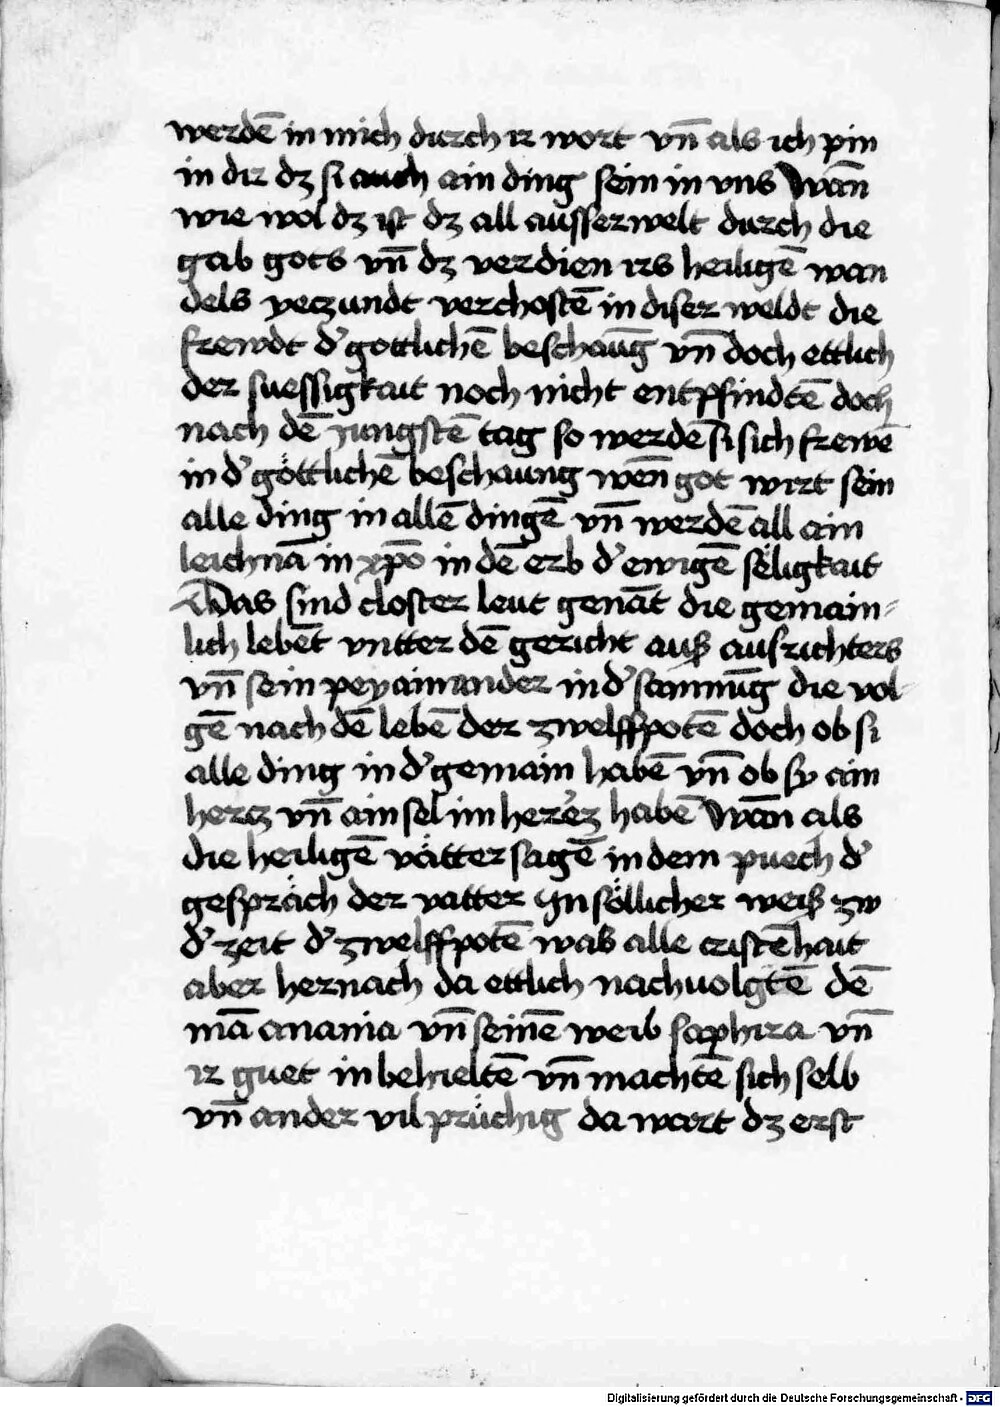 werdē in mich durch ir wort vn̄ als ich pin
in dir dz si auch ain ding sein in vns Wan̄
wie wol dz ist dz all ausserwelt durch die
gab gots vn̄ dz verdien irs heiligē wan
dels yeczundt verchostē in diser weldt die
frewdt d' gottlichē beschaūg vn̄ doch ettlich
der suessigkait noch nicht entpfindtē doch
nach dē jungstē tag so werdē si sich frewē
in d' göttlichē beschaung wen̄ got wirt sein
alle ding in allē dingē vn̄ werdē all ain
leichnā in xp̄o in dē erb d' ewigē säligkait
Das sind closter leut genāt die gemain=
lich lebēt vntter dē gericht auß ausrichters
vn̄ sein pey ainander in d' samnūg die vol-
gē nach dē lebē der zwelffpotē doch ob si
alle ding in d' gemain habē vn̄ ob sy ain
hercz vn̄ ain sel im herczē habē Wan̄ als
die heiligē vätter sagē in dem puech d'
gespräch der vatter In söllicher weiß zw
d' zeit d' zwelffpotē was alle cristēhait
aber hernach da ettlich nachuolgtē dē
mā anania vn̄ seinē weib saphira vn̄
ir guet in behieltē vn̄ machtē sich selb
vn̄ ander vil prüchig da wart dz erst
Digitalisierung gefördert durch die Deutsche Forschungsgemeinschaft - DFG